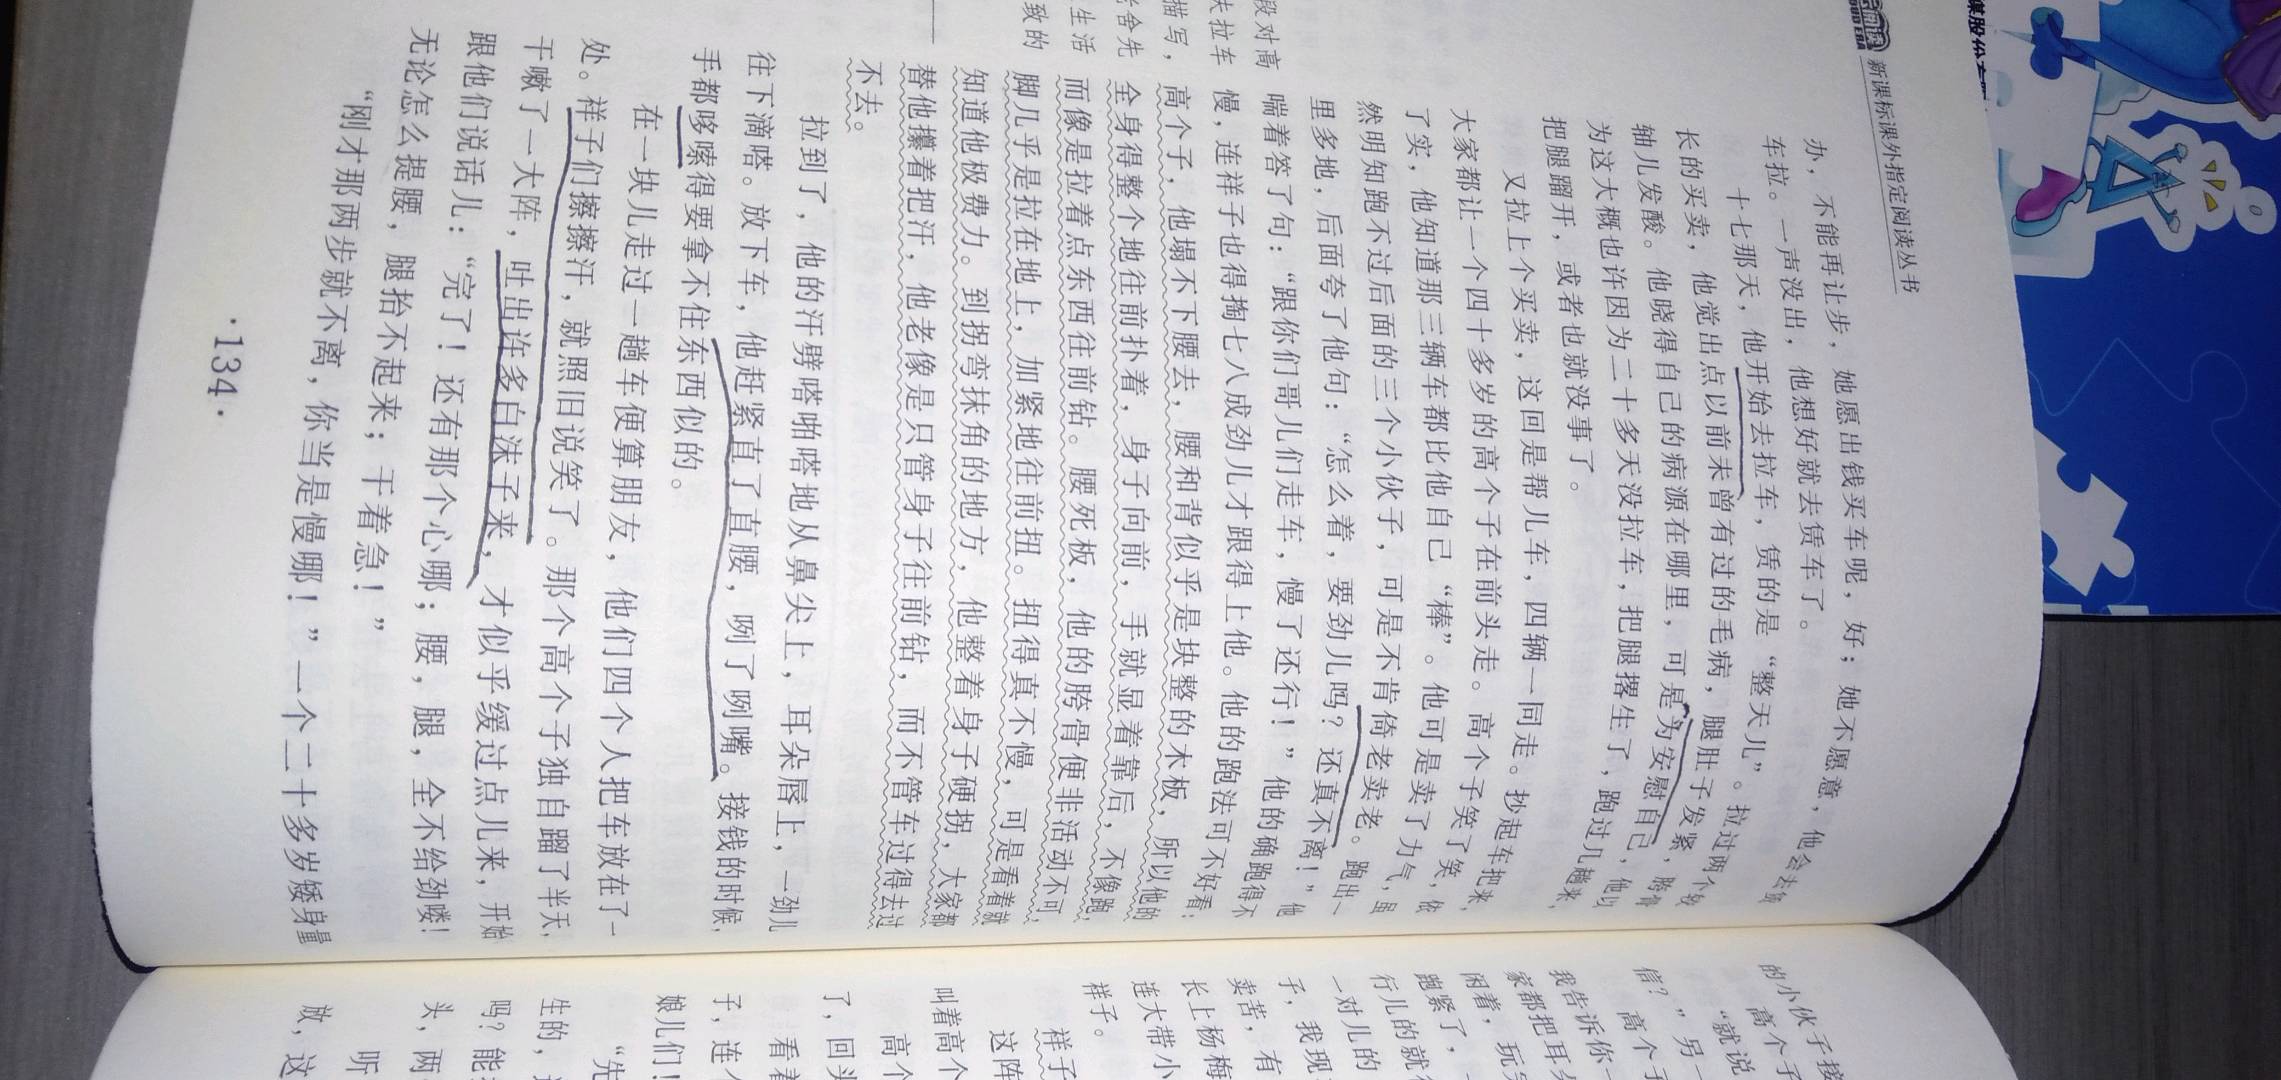 新课标课外指定阅读丛书
办，不能再让步，她愿出钱买车呢，好；她不愿意，他会去赁
车拉。一声没出，他想好就去赁车了。
十七那天，他开始去拉车，赁的是“整天儿”。拉过两个较
长的买卖，他觉出点以前未曾有过的毛病，腿肚子发紧，胯骨
轴儿发酸。他晓得自己的病源在哪里，可是为安慰自己，他以
为这大概也许因为二十多天没拉车，把腿撂生了，跑过几趟来，
把腿蹓开，或者也就没事了。
又拉上个买卖，这回是帮儿车，四辆一同走。抄起车把来，
大家都让一个四十多岁的高个子在前头走。高个子笑了笑，依
了实，他知道那三辆车都比他自己“棒”。他可是卖了力气，虽
然明知跑不过后面的三个小伙子，可是不肯倚老卖老。跑出一
里多地，后面夸了他句：“怎么着，要劲儿吗？还真不离！”他
喘着答了句：“跟你们哥儿们走车，慢了还行！”他的确跑得不
慢，连祥子也得掏七八成劲儿才跟得上他。他的跑法可不好看：
高个子，他塌不下腰去，腰和背似乎是块整的木板，所以他的
全身得整个地往前扑着，身子向前，手就显着靠后，不像跑，
而像是拉着点东西往前钻。腰死板，他的胯骨便非活动不可，
脚几乎是拉在地上，加紧地往前扭。扭得真不慢，可是看着就
知道他极费力。到拐弯抹角的地方，他整着身子硬拐，大家都
替他攥着把汗，他老像是只管身子往前钻，而不管车过得去过
不去。
拉到了，他的汗劈嗒啪嗒地从鼻尖上，耳朵唇上，一劲儿
往下滴嗒。放下车，他赶紧直了直腰，咧了咧嘴。接钱的时候，
手都哆嗦得要拿不住东西似的。
在一块儿走过一趟车便算朋友，他们四个人把车放在了一
处。祥子们擦擦汗，就照旧说笑了。那个高个子独自蹓了半天，
干嗽了一大阵，吐出许多白沫子来，才似乎缓过点儿来，开始
跟他们说话儿：“完了！还有那个心哪；腰，腿，全不给劲喽！
无论怎么提腰，腿抬不起来；干着急！”
“刚才那两步就不离，你当是慢哪！”一个二十多岁矮身量
·134·
段对高
夫拉车
描写，
老舍先
生活
致的
的小伙子接
高个子
“就说
信？”另一
高个子
我告诉你一
家都把耳朵
闲着，玩
跑紧了，
行儿的就
一对儿的
子，我现
卖苦，有
长上杨梅
连大带小
祥子。
祥子
这阵
叫着高个
高个
了，回头
看着
子，连
娘儿们！
“先
生的，
吗？能
头，两
听
放，这